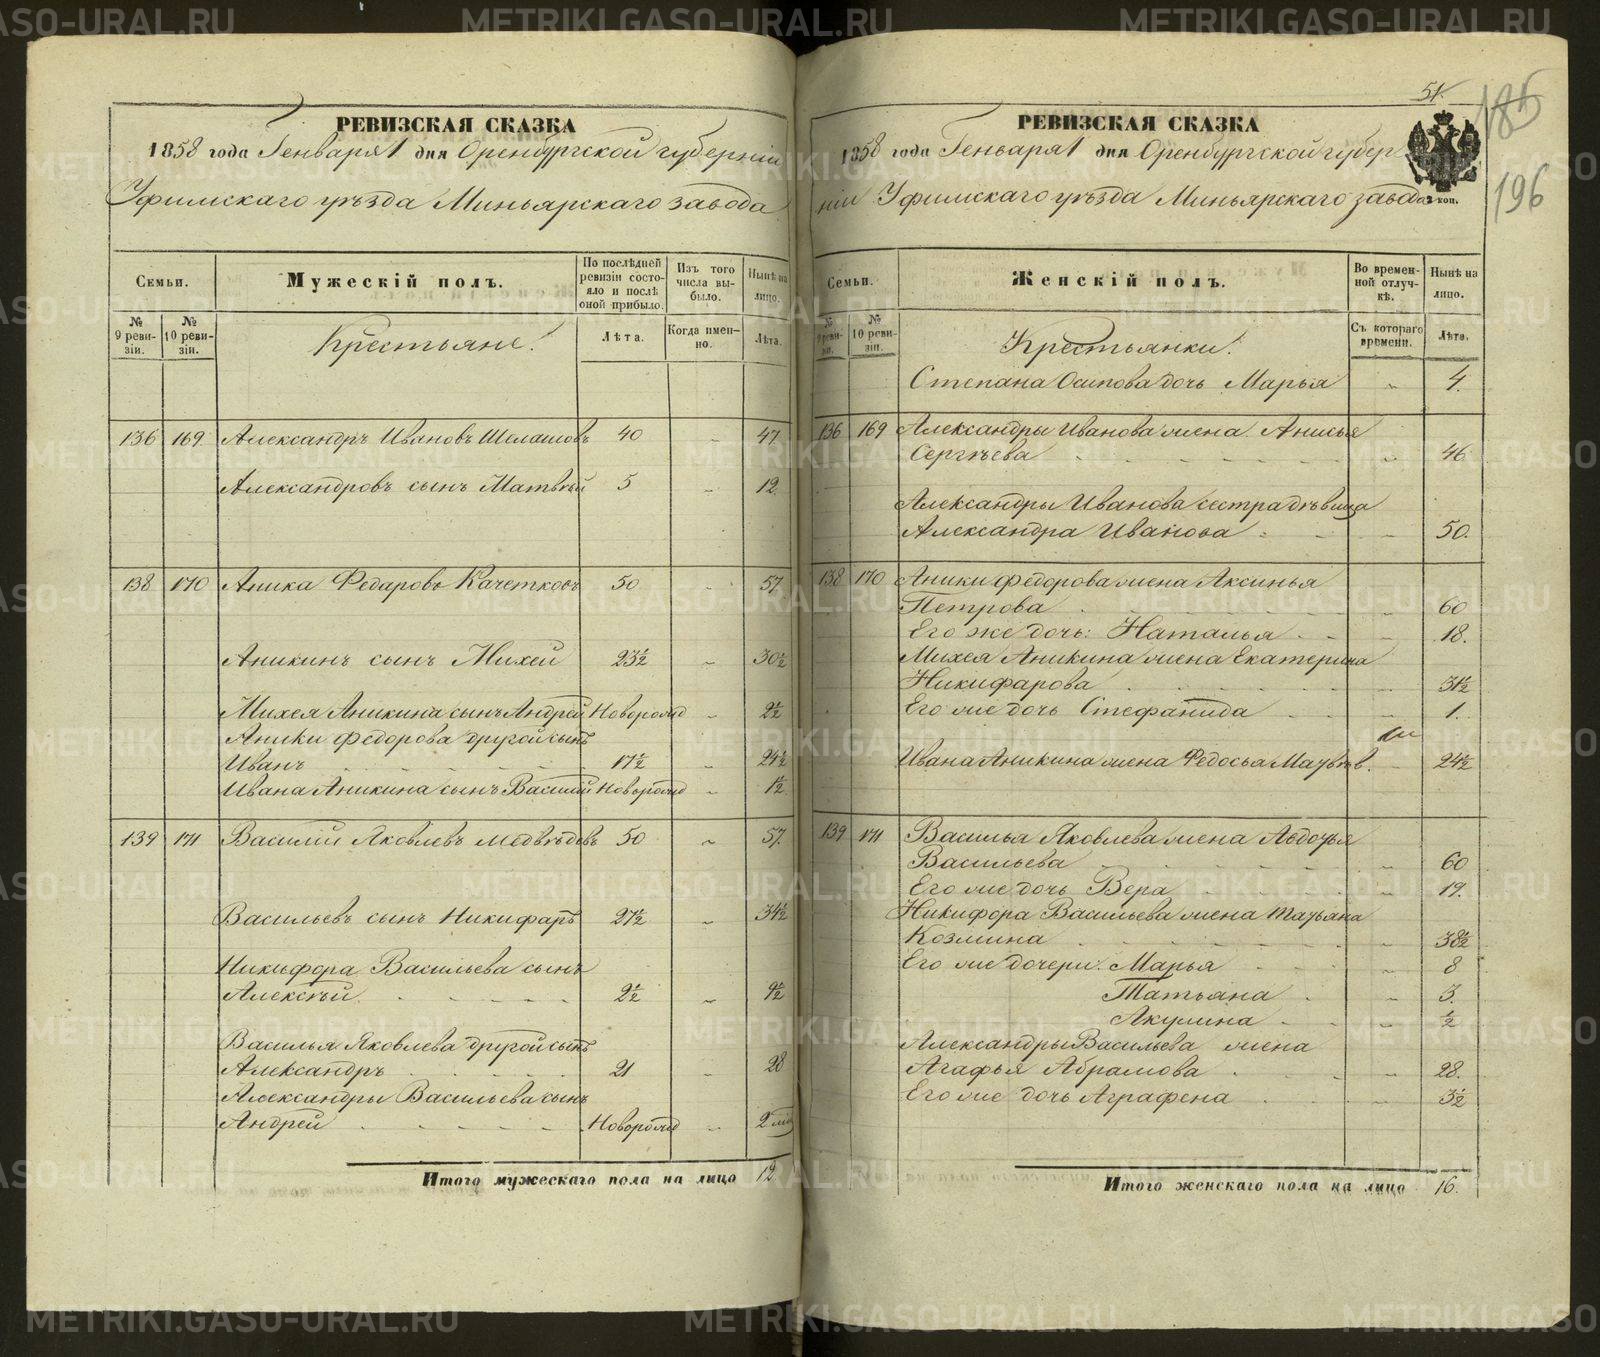 РЕВИЗСКАЯ СКАЗКА
1858 года Генваря 1 дня Оренбургской губерніи
Уфимскаго уѣзда Миньярскаго завода
Семьи.
Мужескій полъ.
По послѣдней ревизіи состояло и послѣ оной прибыло.
Изъ того числа выбыло.
Нынѣ на лицо.
№ 9 ревизіи.
№ 10 ревизіи.
Крестьяне.
Лѣта.
Когда именно.
Лѣта.
136 169 Александръ Ивановъ 40 „ 47
Александровъ сынъ Матвѣй 5 „ 12.
138 170 Аника Федаровъ Качетковъ 50 „ 57
Аникинъ сынъ Михей 23½ „ 30½
Михея Аникина сынъ Андрей Новорожд „ 2½
Аники Федорова другой сынъ
Иванъ 17½ „ 24½
Ивана Аникина сынъ Василій Новорожд „ 1½
139 171 Василій Яковлевъ Медвѣдевъ 50 „ 57.
Васильевъ сынъ Никифаръ 27½ „ 34½
Никифора Васильева сынъ
Алексѣй 2½ „ 9½
Василья Яковлева другой сынъ
Александръ 21 „ 28
Александры Васильева сынъ
Андрей Новорожд „ 2 мѣ
Итого мужескаго пола на лицо 12
51.
185
196
РЕВИЗСКАЯ СКАЗКА
1858 года Геньваря 1 дня Оренбургской губер
ніи Уфимскаго уѣзда Миньярскаго завода
2 коп.
Семьи.
Женскій полъ.
Во временной отлучкѣ.
Нынѣ на лицо.
№ 9 ревизіи.
№ 10 ревизіи.
Крестьянки.
Съ котораго времени.
Лѣта.
Степана Осипова дочь Марья „ 4.
136 169 Александры Иванова жена Анисья
Сергѣева „ 46
Александры Иванова сестра дѣвица
Александра Иванова „ 50.
138 170 Аники Федорова жена Аксинья
Петрова „ 60
Его же дочь: Наталья „ 18.
Михея Аникина жена Екатерина
Никифарова „ 31½
Его же дочь Стефанида „ 1.
Ивана Аникина жена Федосья Матвѣв. „ 24½
139 171 Василья Яковлева жена Авдотья
Васильева „ 60
Его же дочь Вера „ 19.
Никифора Васильева жена Татьяна
Козмина „ 38½
Его же дочери: Марья „ 8
Татьяна „ 3.
Акулина „ ½
Александры Васильева жена
Агафья Абрамова „ 28.
Его же дочь Аграфена „ 3½
Итого женскаго пола на лицо 16.
METRIKI.GASO-URAL.RU